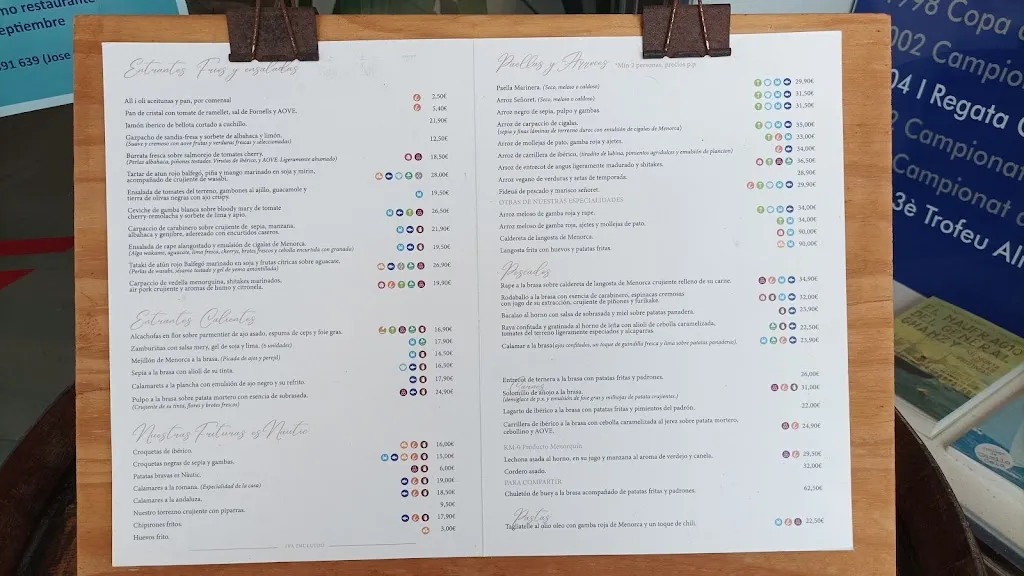 mo restaurante
eptiembre
91 639 (Jose
Entrantes Fríos y ensaladas
All i oli aceitunas y pan, por comensal 2,50€
Pan de cristal con tomate de ramellet, sal de Fornells y AOVE. 5,40€
Jamón ibérico de bellota cortado a cuchillo. 21,90€
Gazpacho de sandía-fresa y sorbete de albahaca y limón. 12,50€
(Suave y cremoso con aove frutas y verduras frescas y seleccionadas)
Burrata fresca sobre salmorejo de tomates cherry. 18,50€
(Perlas albahaca, piñones tostados, Virutas de ibérico, y AOVE. Ligeramente ahumado)
Tartar de atun rojo balfegó, piña y mango marinado en soja y mirin, 28,00€
acompañado de crujiente de wasabi.
Ensalada de tomates del terreno, gambones al ajillo, guacamole y 19,50€
tierra de olivas negras con ajo crispy.
Ceviche de gamba blanca sobre bloody mary de tomate 26,50€
cherry-remolacha y sorbete de lima y apio.
Carpaccio de carabinero sobre crujiente de sepia, manzana, 21,90€
albahaca y jengibre, aderezado con encurtidos caseros.
Ensalada de rape alangostado y emulsión de cigalas de Menorca. 19,50€
(Alga wakame, aguacate, lima fresca, cherrys, brotes frescos y cebolla encurtida con granada)
Tataki de atún rojo Balfegó marinado en soja y frutas cítricas sobre aguacate. 26,90€
(Perlas de wasabi, sésamo tostado y gel de yema avainillada)
Carpaccio de vedella menorquina, shitakes marinados, 19,90€
air pork crujiente y aromas de humo y citronela.
Entrantes Calientes
Alcachofas en flor sobre parmentier de ajo asado, espuma de ceps y foie gras. 16,90€
Zamburiñas con salsa mery, gel de soja y lima. (6 unidades) 17,90€
Mejillón de Menorca a la brasa. (Picada de ajos y perejil) 16,50€
Sepia a la brasa con alioli de su tinta. 16,50€
Calamareta a la plancha con emulsión de ajo negro y su refrito. 17,90€
Pulpo a la brasa sobre patata mortero con esencia de sobrasada. 24,90€
(Crujiente de su tinta, flores y brotes frescos)
Nuestras Frituras es Nàutic
Croquetas de ibérico. 16,00€
Croquetas negras de sepia y gambas. 15,00€
Patatas bravas es Nàutic. 6,00€
Calamares a la romana. (Especialidad de la casa) 19,00€
Calamares a la andaluza. 18,50€
Nuestro torrezno crujiente con piparras. 9,50€
Chipirones fritos. 17,90€
Huevos frito. 3,00€
IVA INCLUIDO
Paellas y Arroces *Mín 2 personas, precios p.p
Paella Marinera. (Seco, meloso o caldoso) 29,90€
Arroz Señoret. (Seco, meloso o caldoso) 31,50€
Arroz negro de sepia, pulpo y gambas. 31,50€
Arroz de carpaccio de cigalas. 35,00€
(sepia y finas láminas de torrezno duroc con emulsión de cigalas de Menorca)
Arroz de mollejas de pato, gamba roja y ajetes. 33,00€
Arroz de carrillera de ibérico, (tirabito de lubina, pimientos agridulces y emulsión de plancton) 34,00€
Arroz de entrecot de angus ligeramente madurado y shitakes. 36,50€
Arroz vegano de verduras y setas de temporada. 28,90€
Fideuá de pescado y marisco señoret. 29,90€
OTRAS DE NUESTRAS ESPECIALIDADES
Arroz meloso de gamba roja y rape. 34,00€
Arroz meloso de gamba roja, ajetes y mollejas de pato. 34,00€
Caldereta de langosta de Menorca. 90,00€
Langosta frita con huevos y patatas fritas. 90,00€
Pescados
Rape a la brasa sobre caldereta de langosta de Menorca crujiente relleno de su carne. 34,90€
Rodaballo a la brasa con esencia de carabinero, espinacas cremosas 32,00€
con jugo de su extracción, crujiente de piñones y furikake.
Bacalao al horno con salsa de sobrasada y miel sobre patatas panadera. 23,90€
Raya confitada y gratinada al horno de leña con alioli de cebolla caramelizada, 22,50€
tomates del terreno ligeramente especiados y alcaparras.
Calamar a la brasa(ajos confitados, un toque de guindilla fresca y lima sobre patatas panaderas). 23,90€
Carnes
Entrecot de ternera a la brasa con patatas fritas y padrones. 26,00€
Solomillo de añojo a la brasa. 31,00€
(demiglace de p.x. y emulsión de foie gras y milhojas de patata crujientes.)
Lagarto de ibérico a la brasa con patatas fritas y pimientos del padrón. 22,00€
Carrillera de ibérico a la brasa con cebolla caramelizada al jerez sobre patata mortero, 24,90€
cebollino y AOVE.
KM-0 Producto Menorquín
Lechona asada al horno, en su jugo y manzana al aroma de verdejo y canela. 29,50€
Cordero asado. 32,00€
PARA COMPARTIR
Chuletón de buey a la brasa acompañado de patatas fritas y padrones. 62,50€
Pastas
Tagliatelle al olio oleo con gamba roja de Menorca y un toque de chili. 22,50€
1998 Copa
002 Campio
04 I Regata
Campionat
Campionat d
3è Trofeu Al